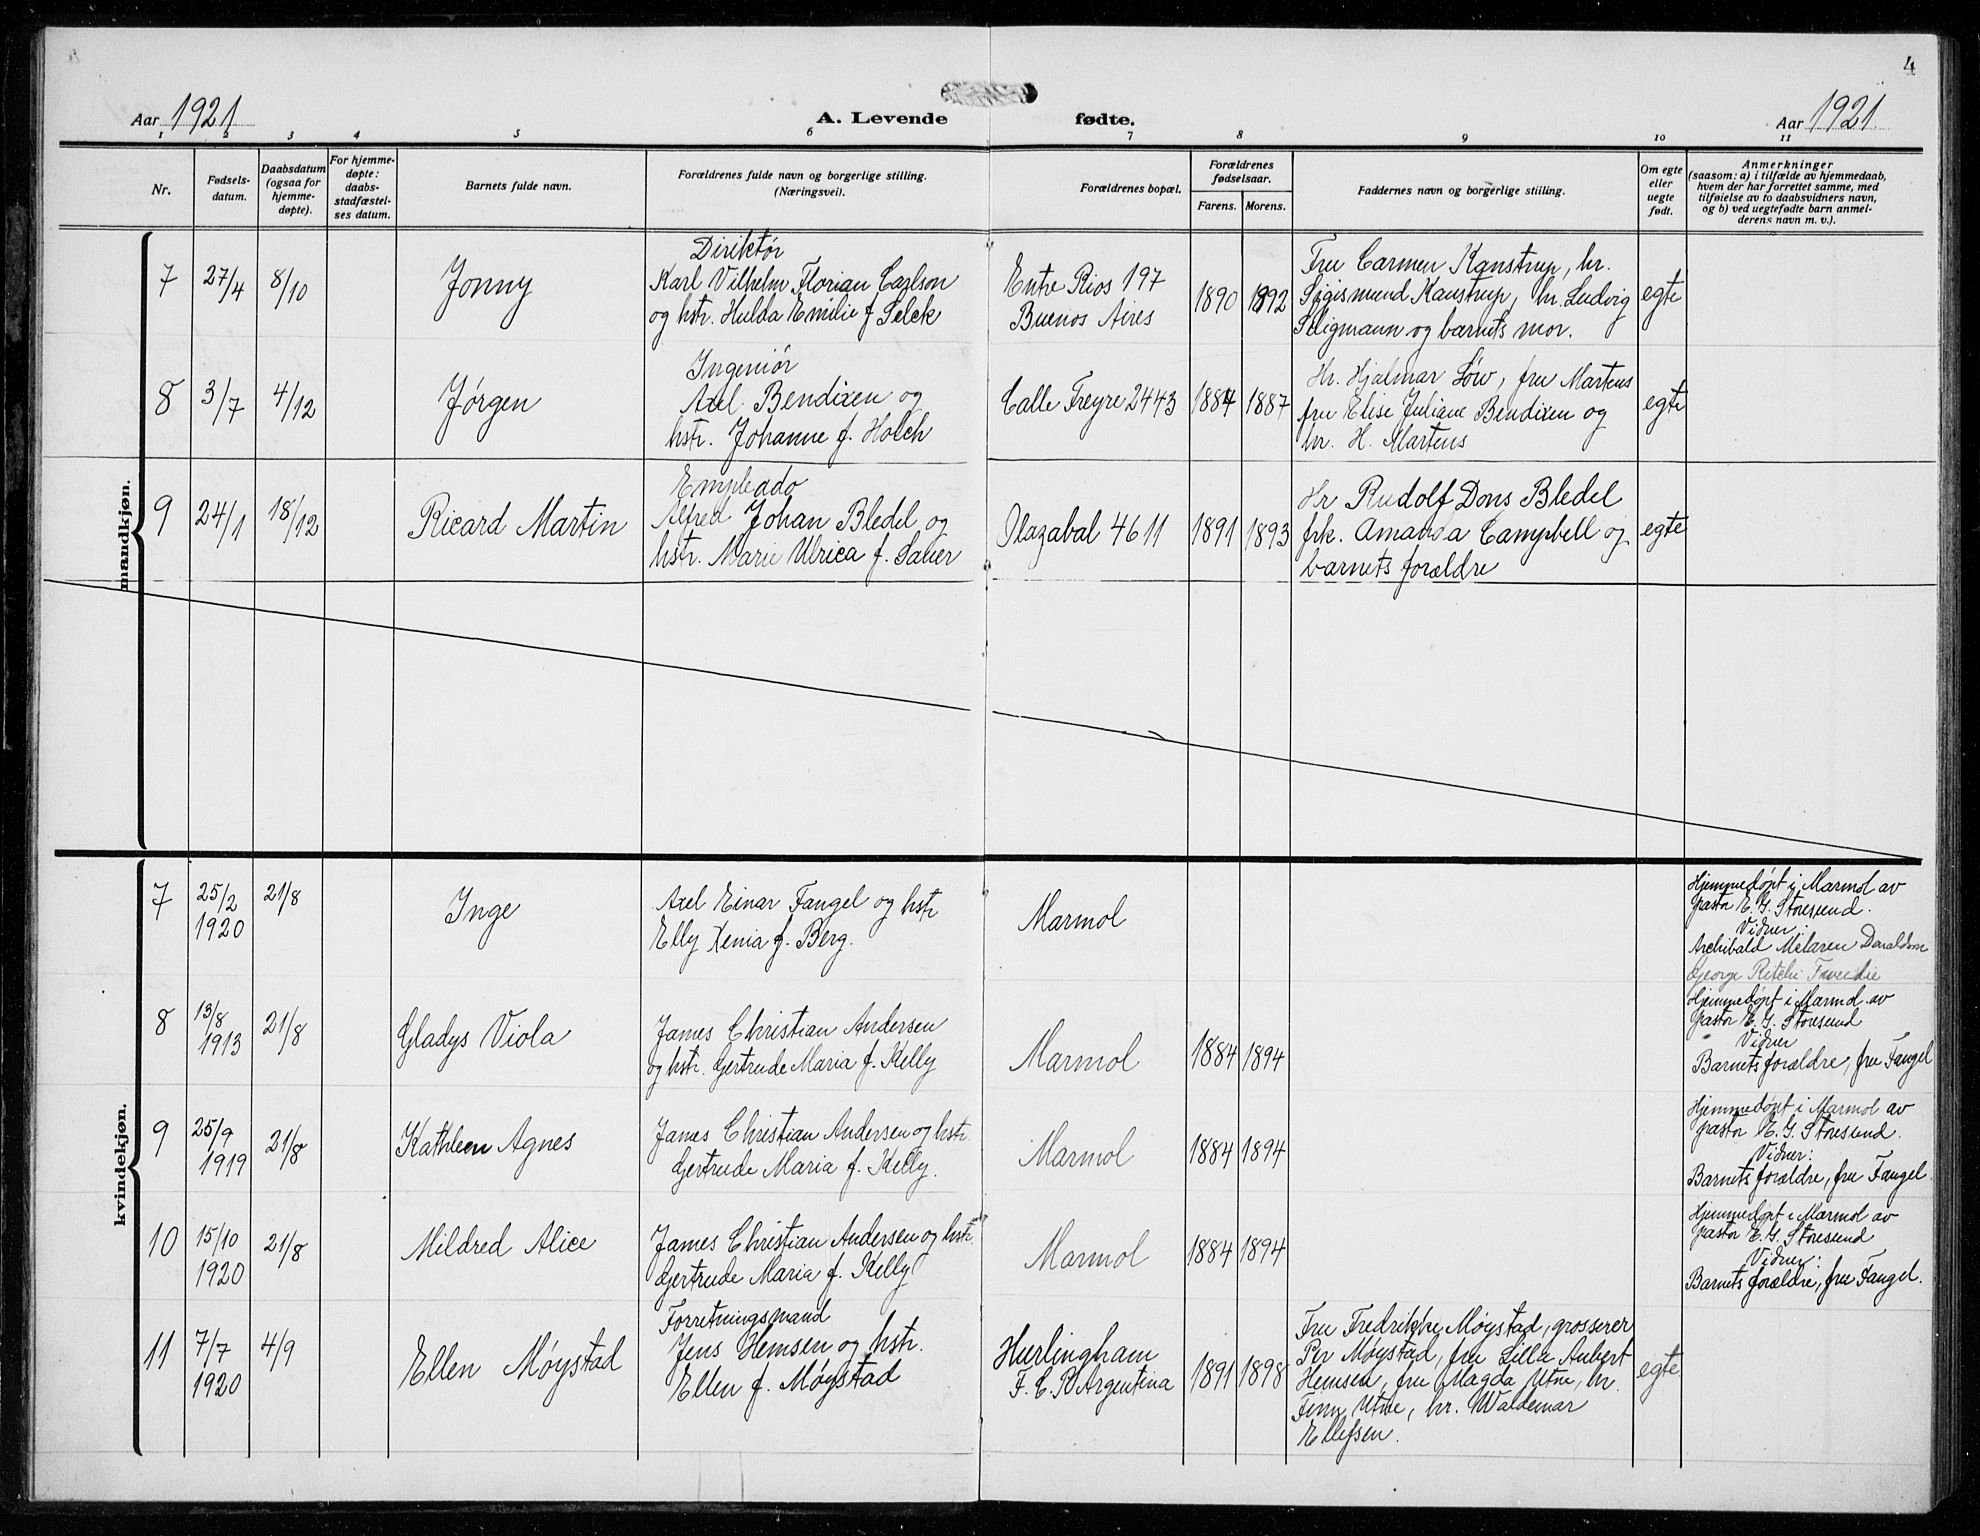 4
Aar 1921
A. Levende fødte.
Aar 1921.
1 2 3 4 5 6 7 8 9 10 11
Nr.
Fødsels-
datum.
Daabsdatum
(ogsaa for
hjemme-
døpte).
For hjemme-
døpte:
daabs-
stadfæstel-
ses datum.
Barnets fulde navn.
Forældrenes fulde navn og borgerlige stilling.
(Næringsvei).
Forældrenes bopæl.
Forældrenes
fødselsaar.
Farens. Morens.
Faddernes navn og borgerlige stilling.
Om egte
eller
uegte
født.
Anmerkninger
(saasom: a) i tilfælde av hjemmedaab,
hvem der har forrettet samme, med
tilføielse av to daabsvidners navn,
og b) ved uegtefødte barn anmel-
derens navn m. v.).
mandkjøn.
7
27/4
8/10
Jonny
Diriktør
Karl Vilhelm Florian Carlson
og hstr. Hulda Emilie f Selck
Entre Rios 197
Buenos Aires
1890
1892
Fru Carmen Kanstrup, hr.
Sigismund Kanstrup, hr. Ludvig
Seligmann og barnets mor.
egte
8
3/7
4/12
Jørgen
Ingeniør
Axel Bendixen og
hstr. Johanne f. Holch
Calle Freyre 2443
1884
1887
Hr. Hjalmar Löw, fru Martens
fru Elise Juliane Bendixen og
hr. H. Martens
egte
9
24/1
18/12
Ricard Martin
Empleado
Alfred Johan Bledel og
hstr. Marie Ulrica f. Sauer
Olazabal 4611
1891
1893
Hr Rudolf Dons Bledel
frk. Amanda Campbell og
barnets forældre
egte
kvindekjøn.
7
25/2
1920
21/8
Inge
Axel Einar Fangel og hstr
Elly Xenia f. Berg.
Marmol
Hjemmedøpt i Marmol av
pastor E. G. Storesund.
Vidner:
Archibald Mclaren Donaldson
George Ritchi Tweedie
8
13/8
1913
21/8
Gladys Viola
James Christian Andersen
og hstr. Gertrude Maria f. Kelly
Marmol
1884
1894
Hjemmedøpt i Marmol av
pastor E. G. Storesund
Vidner
Barnets forældre, fru Fangel
9
25/9
1919
21/8
Kathleen Agnes
James Christian Andersen og hstr.
Gertrude Maria f. Kelly.
Marmol
1884
1894
Hjemmedøpt i Marmol av
pastor E. G. Storesund.
Vidner:
Barnets forældre, fru Fangel.
10
15/10
1920
21/8
Mildred Alice
James Christian Andersen og hstr.
Gertrude Maria f. Kelly
Marmol
1884
1894
Hjemmedøpt i Marmol av
pastor E. G. Storesund
Vidner:
Barnets forældre, fru Fangel.
11
7/7
1920
4/9
Ellen Møystad
Forretningsmand
Jens Hemsen og hstr.
Ellen f. Møystad
Hurlingham
F. C. P. Argentina
1891
1898
Fru Fredrikke Møystad, grosserer
Per Møystad, fru Lilla Aubert
Hemsen, fru Magda Utne, hr.
Finn Utne, hr. Waldemar
Ellefsen.
egte